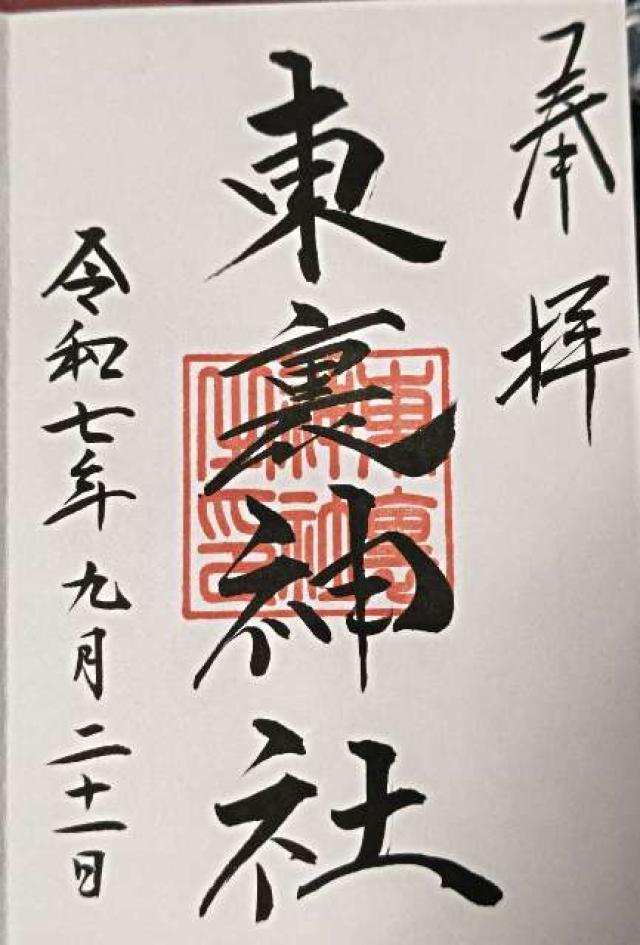 奉拝
東裏神社
東裏神社之印
令和七年九月二十一日